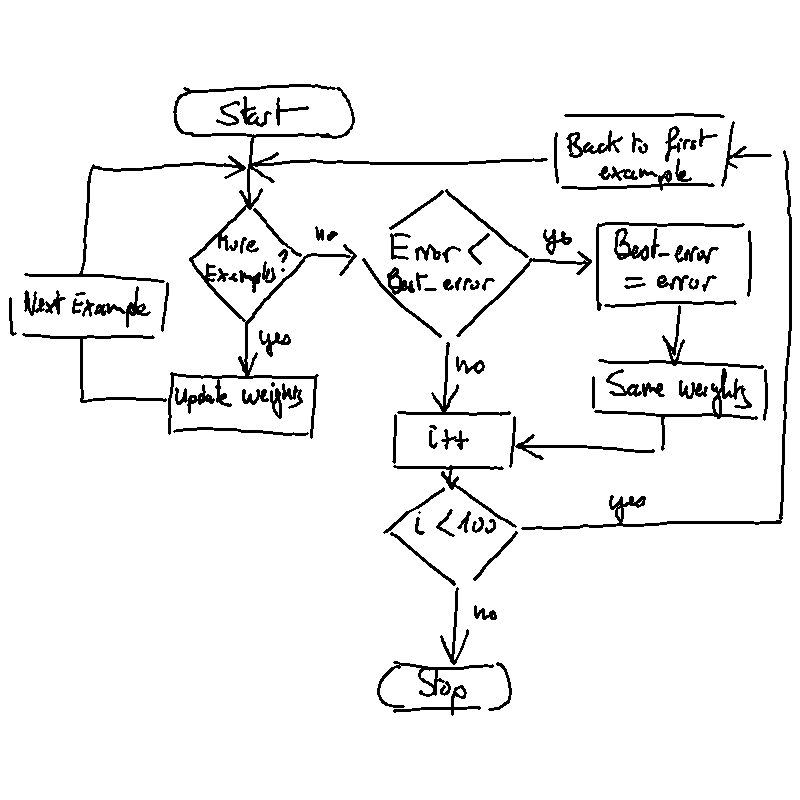 Start
Back to first
example
More
Examples?
no
Error <
Best_error
yes
Best_error
= error
Next Example
yes
Update weights
no
Same weights
i++
i < 100
yes
no
Stop